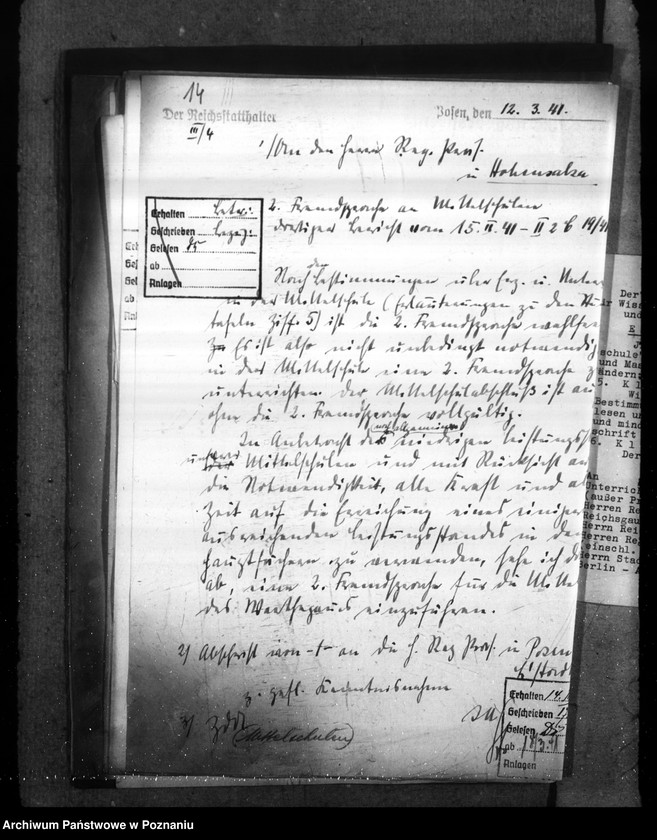 14
Der Reichsstatthalter
III/4
Posen, den 12. 3. 41.
1/ An den Herrn Reg. Präs.
in Hohensalza
Erhalten
Geschrieben
Gelesen
ab
Anlagen
2. Fremdsprache an Mittelschulen
dortiger Bericht vom 15. II. 41 – II 2 b 19/41
Nach den Bestimmungen über Erz. u. Unter
in der Mittelschule (Erläuterungen zu den
tafeln Ziff. 5) ist die 2. Fremdsprache wahlfrei
Es ist also nicht unbedingt notwendig
in der Mittelschule eine 2. Fremdsprache z
unterrichten. Der Mittelschulabschluß ist au
ohne die 2. Fremdsprache vollgültig.
In Anbetracht des niedrigen Leistungs
Mittelschulen und mit Rücksicht au
die Notwendigkeit, alle Kraft und al
Zeit auf die Erreichung eines einiger
ausreichenden Leistungsstandes in den
Hauptfächern zu verwenden, sehe ich d
ab, eine 2. Fremdsprache für die Mittel
des Warthegaus einzuführen.
2) Abschrift von -1- an die H. Reg Präs. in Posen
z. gefl. Kenntnisnahme
3) ZdA
(Mittelschulen)
Erhalten 14.
Geschrieben
Gelesen
ab
Anlagen
Der
Wis
und
E
J
schule
und Ma
ändern:
5. K l
Wi
Bestimm
lesen u
und min
schrift
6. K l
Der
An
Unterric
(außer P
Herren Re
Reichsgau
Herrn Rei
Herren Re
einschl.
Herrn Stad
Berlin -
Archiwum Państwowe w Poznaniu